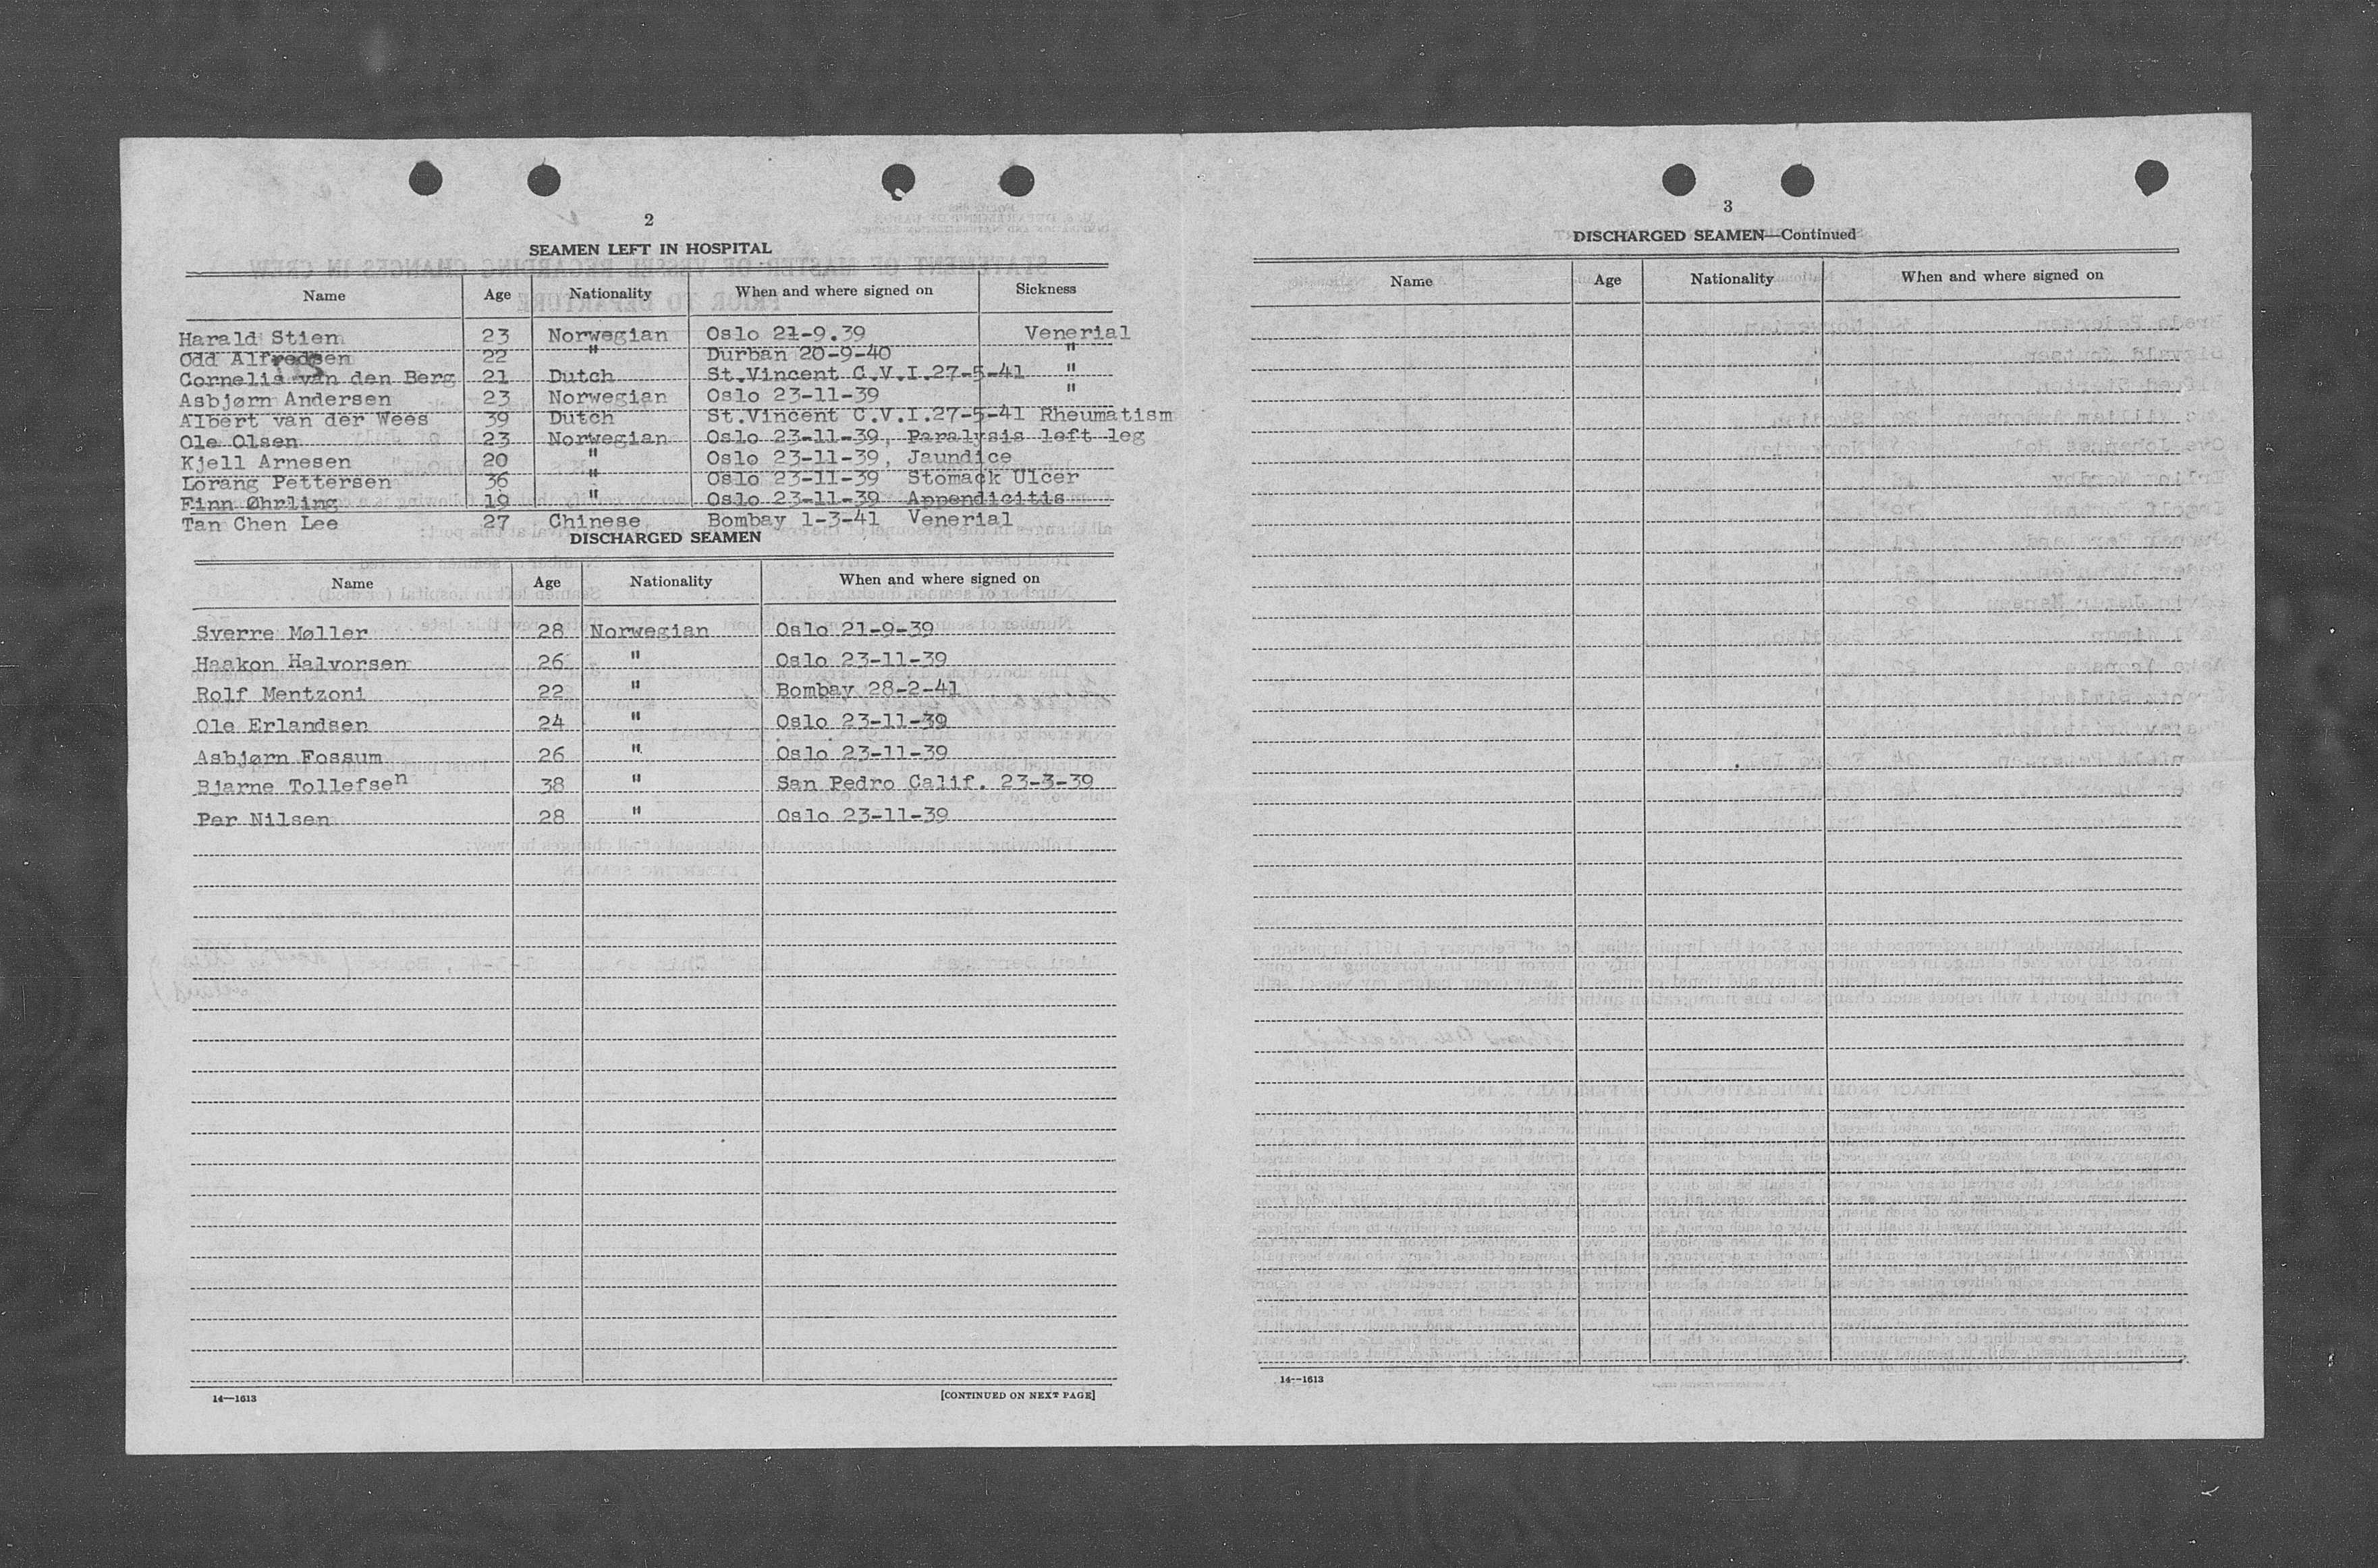 2
SEAMEN LEFT IN HOSPITAL
Name Age Nationality When and where signed on Sickness
Harald Stien 23 Norwegian Oslo 21-9.39 Venerial
Odd Alfredsen 22 " Durban 20-9-40 "
Cornelis van den Berg 21 Dutch St.Vincent C.V.I.27-5-41 "
Asbjørn Andersen 23 Norwegian Oslo 23-11-39 "
Albert van der Wees 39 Dutch St.Vincent C.V.I.27-5-41 Rheumatism
Ole Olsen 23 Norwegian Oslo 23-11-39, Paralysis left leg
Kjell Arnesen 20 " Oslo 23-11-39, Jaundice
Lorang Pettersen 36 " Oslo 23-11-39 Stomack Ulcer
Finn Øhrling 19 " Oslo 23-11-39 Appendicitis
Tan Chen Lee 27 Chinese Bombay 1-3-41 Venerial
DISCHARGED SEAMEN
Name Age Nationality When and where signed on
Sverre Møller 28 Norwegian Oslo 21-9-39
Haakon Halvorsen 26 " Oslo 23-11-39
Rolf Mentzoni 22 " Bombay 28-2-41
Ole Erlandsen 24 " Oslo 23-11-39
Asbjørn Fossum 26 " Oslo 23-11-39
Bjarne Tollefsen 38 " San Pedro Calif. 23-3-39
Per Nilsen 28 " Oslo 23-11-39
14—1613 [CONTINUED ON NEXT PAGE]
3
DISCHARGED SEAMEN—Continued
Name Age Nationality When and where signed on
14—1613